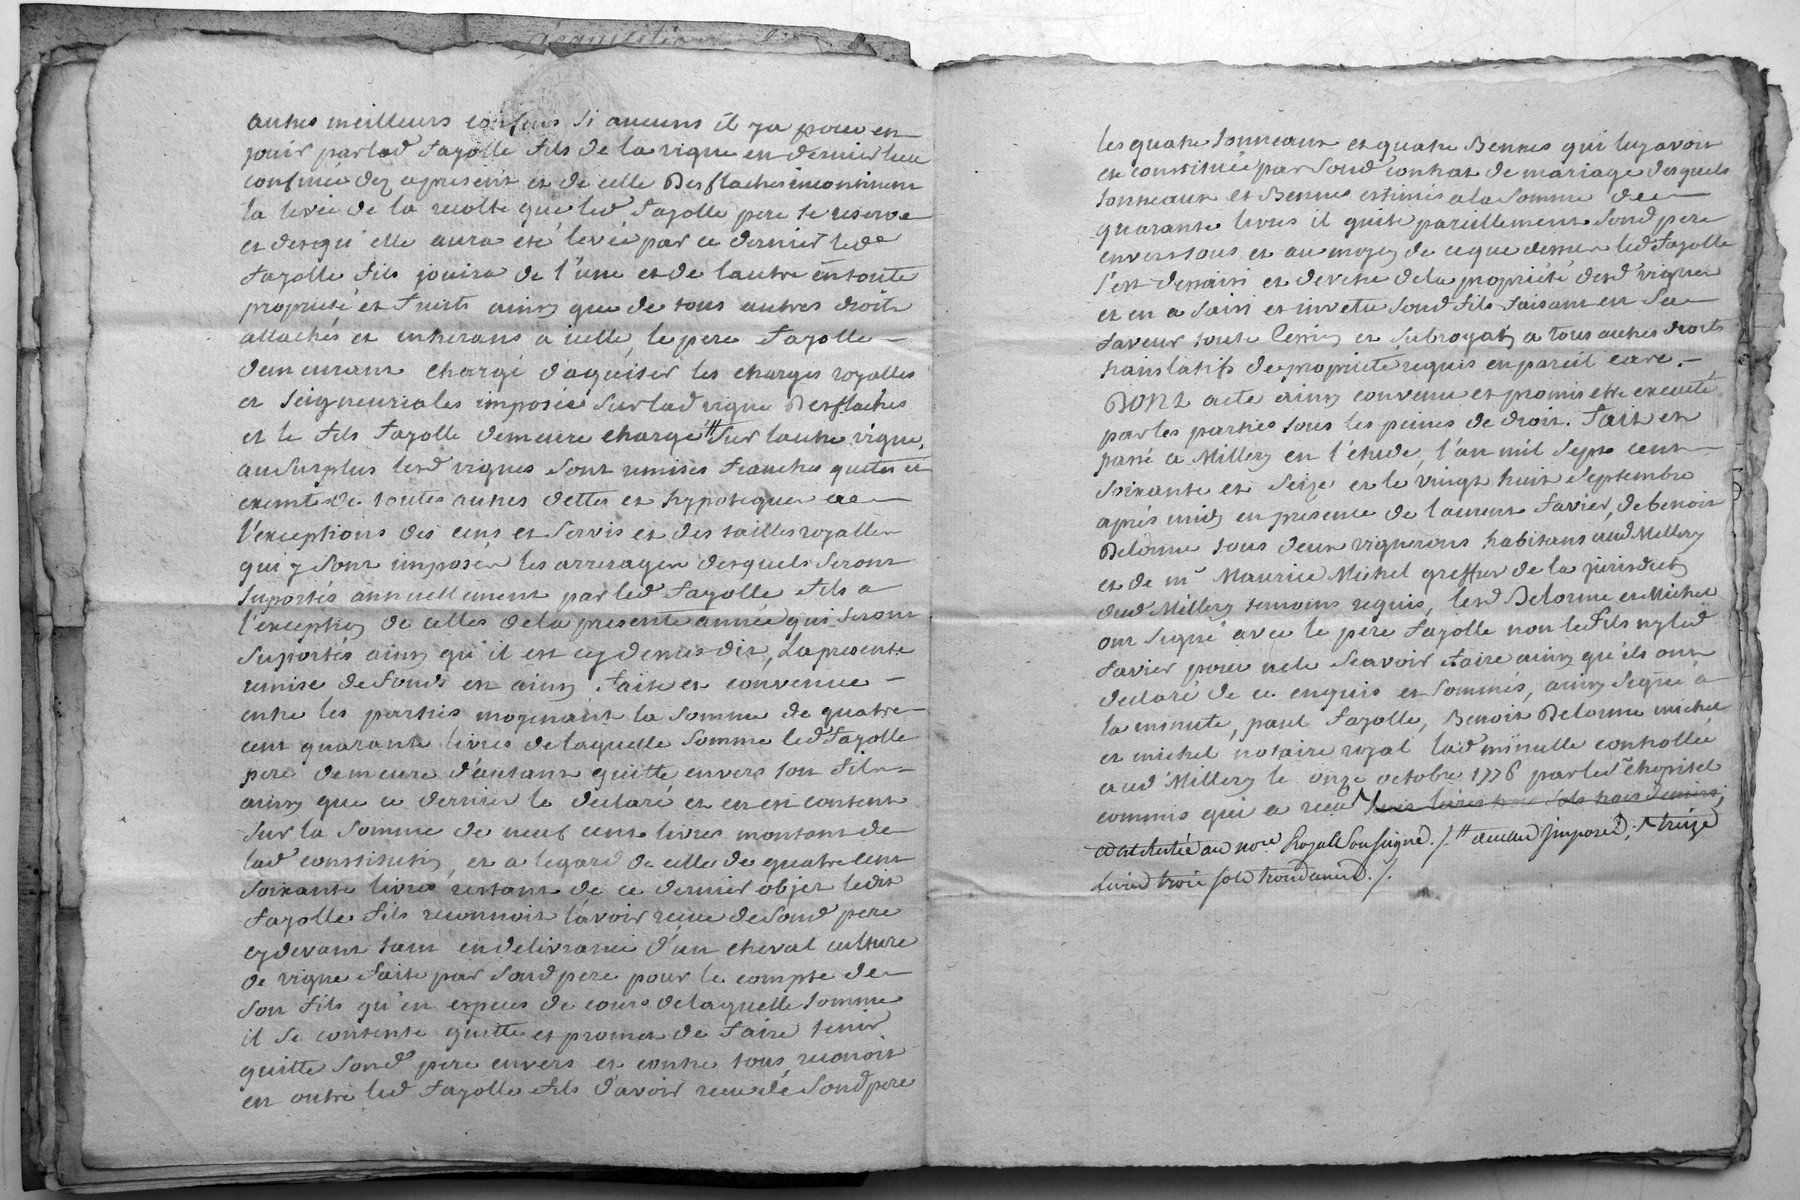 autres meilleurs confins si aucuns il ya pour en
jouir par led fayolle fils de la vigne en dernier lieu
confinée dez apresent et de celle Desflaches incontinent
la levée de la recolte que led fayolle pere se reserve
et desqu'elle aura eté levée par ce dernier led
fayolle fils jouira de l'une et de lautre en toute
proprieté et fruits ainsy que de tous autres droits
attachés et inherans a icelle, le pere fayolle
demeurant chargé daquiser les charges royalles
et seigneuriales imposées sur lad vigne Desflaches
et le fils fayolle demeure chargé # sur lautre vigne,
au surplus lesd vignes sont remises franches quites et
exemtes de toutes autres dettes et hypoteques a
l'exceptions des cens et servis et des tailles royalles
qui y sont imposés les arrerages desquels seront
suportés annuellement par led fayolle fils a
l'exception de celles de la presente année qui seront
suportés ainsy qu'il est cydessus dit, La presente
remise de fonds est ainsy faite et convenue
entre les parties moyenant la somme de quatre
cent quarante livres de laquelle somme led fayolle
pere demeure d'autant quitte envers son fils
ainsy que ce dernier le declare et en est content
sur la somme de neuf cent livres montant de
lad constitution, et a legard de celle de quatre cent
soixante livres restant de ce dernier objet ledit
fayolle fils reconnoit l'avoir recue de sond pere
cydevant tant en delivrance d'un cheval culture
de vigne faite par sond pere pour le compte de
son fils qu'en especes de cours de laquelle somme
il se contente quitte et promet de faire tenir
quitte sond pere envers et contre tous, reconoit
en outre led fayolle fils d'avoir recu de sond pere
les quatre tonneaux et quatre Bennes qui luy avoit
eté constitué par sond contrat de mariage desquels
tonneaux et Bennes estimés a la somme de
quarante livres il quite pareillement sond pere
envers tous et au moyen de ce que dessus led fayolle
s'est dessaisi et devetu de la proprieté desd vignes
et en a saisi et invetu sond fils faisant en sa
faveur toute cession et subrogation a tous autres droits
translatifs de proprieté requis en pareil cas.
DONT acte ainsy convenu et promis etre executé
par les parties sous les peines de droit. fait et
passé a Millery en l'étude, l'an mil sept cent
soixante et seize et le vingt huit septembre
aprés midy en presence de laurent favier, de benoit
Delorme tous deux vignerons habitans aud Millery
et de mr Maurice Michel greffier de la jurisdiction
dud Millery temoins requis, lesd Delorme et Michel
ont signé avec le pere fayolle non led fils ny led
favier pour ne le scavoir faire ainsy qu'ils ont
declaré de ce enquis et sommés, ainsy signé a
la minute, paul fayolle, Benoit Delorme michel
et michel notaire royal lad minutte controllée
aud Millery le onze octobre 1776 par led Sr chopitel
commis qui a recu trois livres trois sols trois deniers,
au nore Royal soussigné ./. # icelles imposés, treize
livres trois sols trois deniers ./.